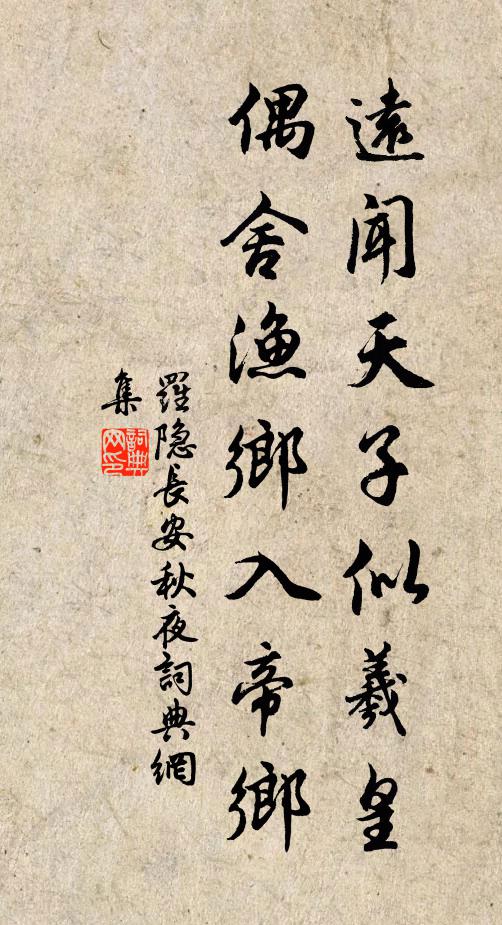 遠聞天子似羲皇
偶舍漁鄉入帝鄉
羅隐長安秋夜詞典網
集
詞典
网印